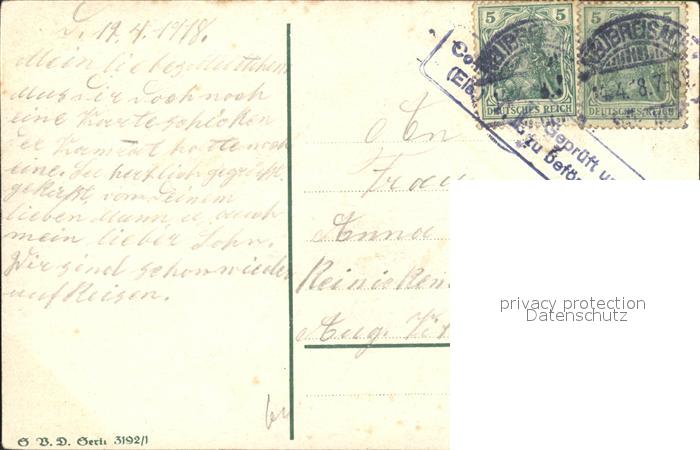 L. 19.4.1918.
Mein liebes Muttchen
Muss Dir doch noch
eine Karte schicken
der Kamrat hatte noch
eine. Sei herzlich gegrüßt
geküßt von Deinem
lieben Mann u. auch
mein lieber Sohn.
Wir sind schon wieder
auf Reisen.
5 5 5 5
DEUTSCHES REICH DEUTSCHES REICH
Geprüft u
zu beför
An
Frau
Anna
Reinicken
Aug.
privacy protection
Datenschutz
G. B. D. Serie 3192/1